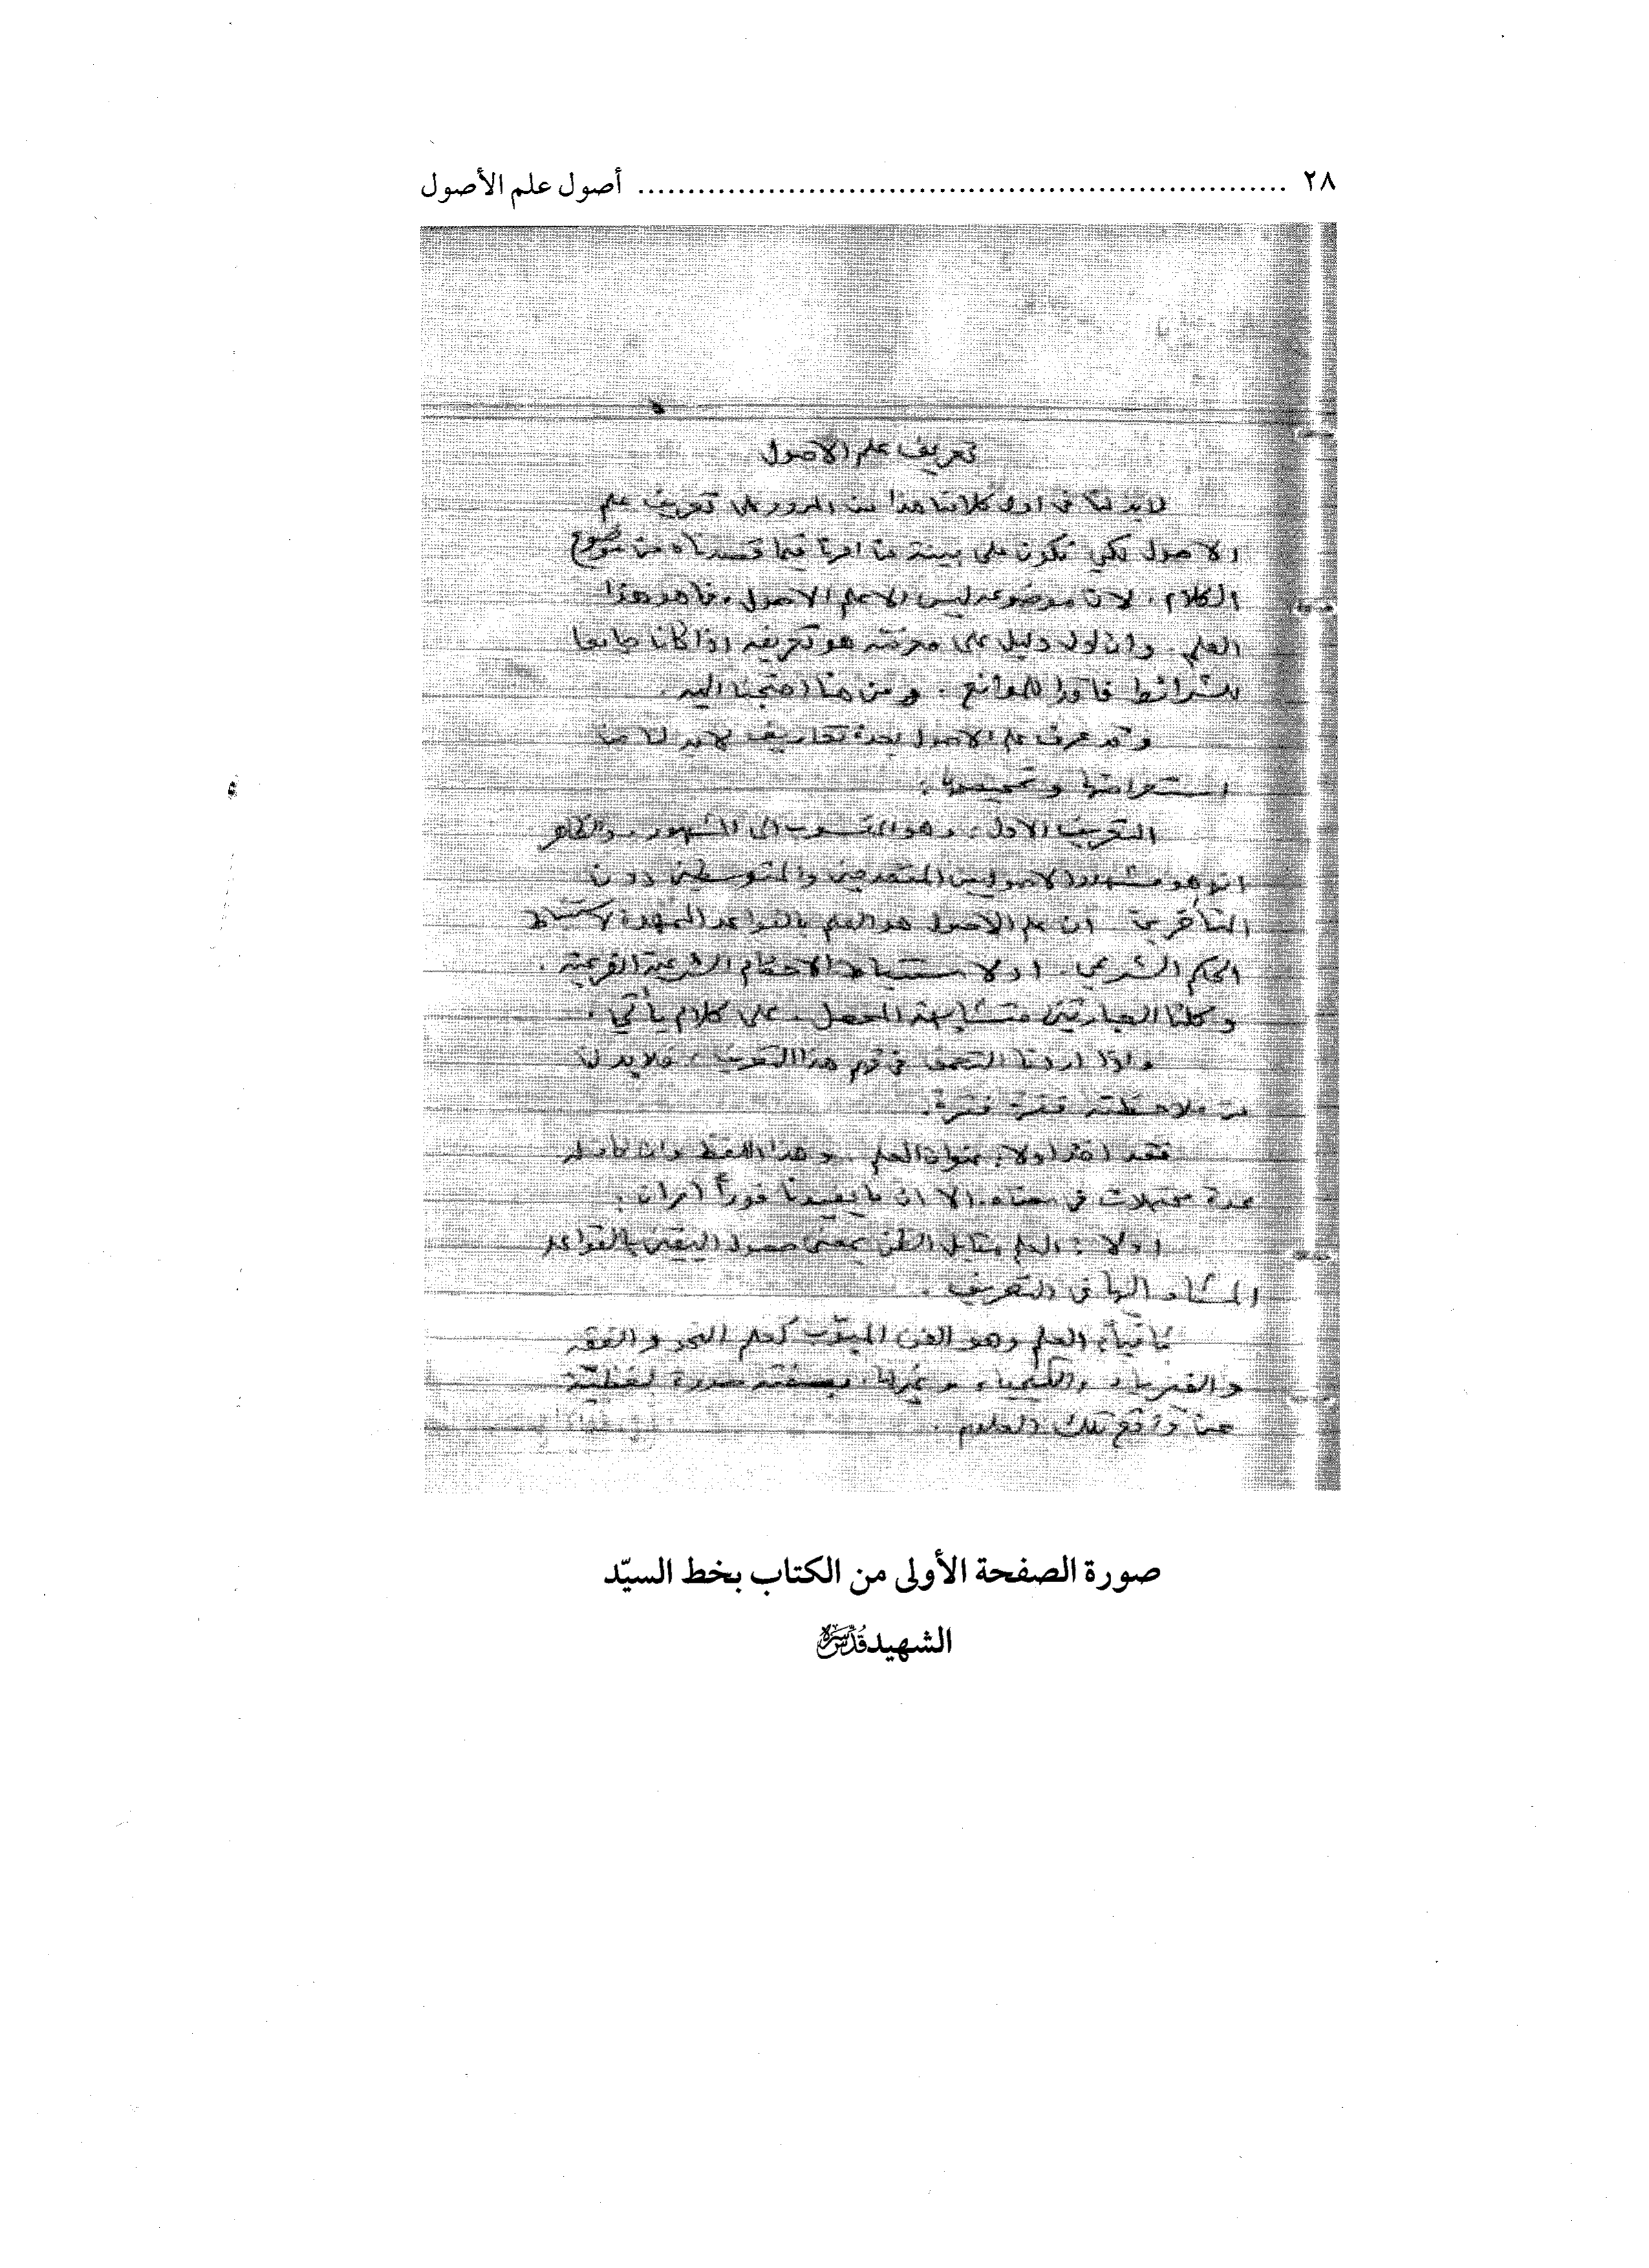 ٢٨ ................................................................ أصول علم الأصول
تعريف علم الاصول
لابد لنا في اول كلامنا هذا من المرور على تعريف علم
الاصول لكي نكون على بينة من امرنا فيما قصدناه من موضوع
الكلام. لان موضوعه ليس الا علم الاصول. فما هو هذا
العلم. وان اول دليل على معرفته هو تعريفه اذا كان جامعا
للشرائط فاقدا للموانع. ومن هنا احتجنا اليه.
وقد عرف علم الاصول بعدة تعاريف لابد لنا من
استعراضها وتمحيصها:
التعريف الاول: وهو المنسوب الى المشهور. والظاهر
انه هو مشهور الاصوليين المتقدمين والمتوسطين دون
المتأخرين ان علم الاصول هو العلم بالقواعد الممهدة لاستنباط
الحكم الشرعي. او لاستنباط الاحكام الشرعية الفرعية.
وكلتا العبارتين متشابهة المحصل. على كلام يأتي.
واذا اردنا التعمق في فهم هذا التعريف. فلابد لنا
من ملاحظته فقرة فقرة.
فقد اخذ اولا: عنوان العلم. وهذا اللفظ وان كان له
عدة محتملات في معناه. الا ان ما يفيدنا فورا امران:
اولا: العلم مقابل الظن بمعنى حصول اليقين بالقواعد
المشار اليها في التعريف.
ثانيا: العلم وهو الفن المبوّب كعلم النحو والفقه
والفيزياء والكيمياء وغيرها. بصفته صورة لفظية
عن واقع تلك العلوم.
صورة الصفحة الأولى من الكتاب بخط السيّد
الشهيد قدس سره